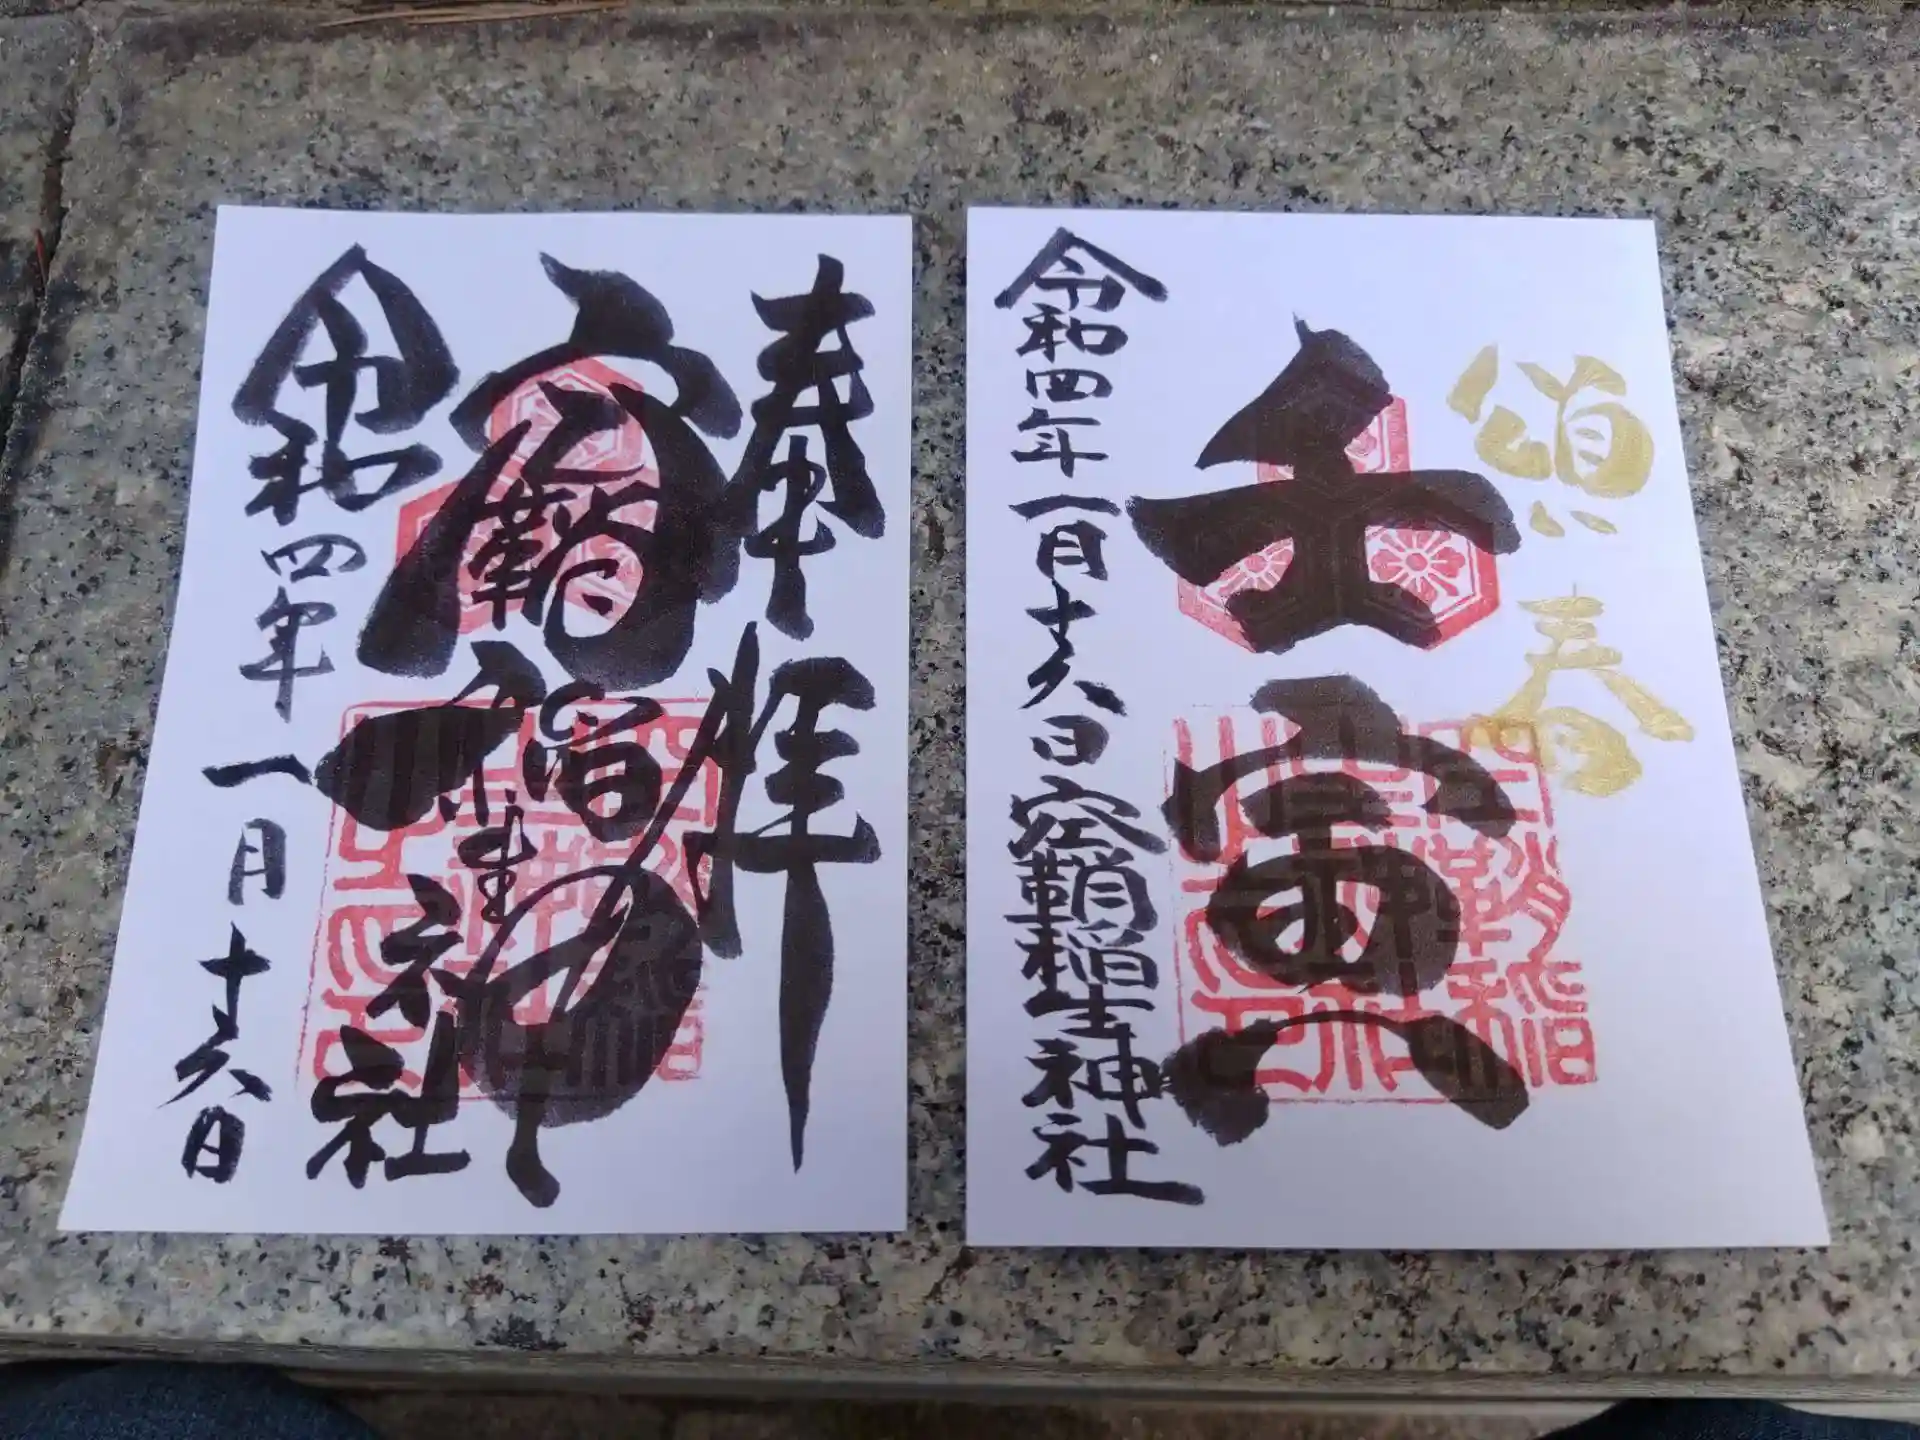 頌春
壬寅
令和四年一月十六日空鞘稲生神社
奉拝
空鞘稲生神社
令和四年一月十六日